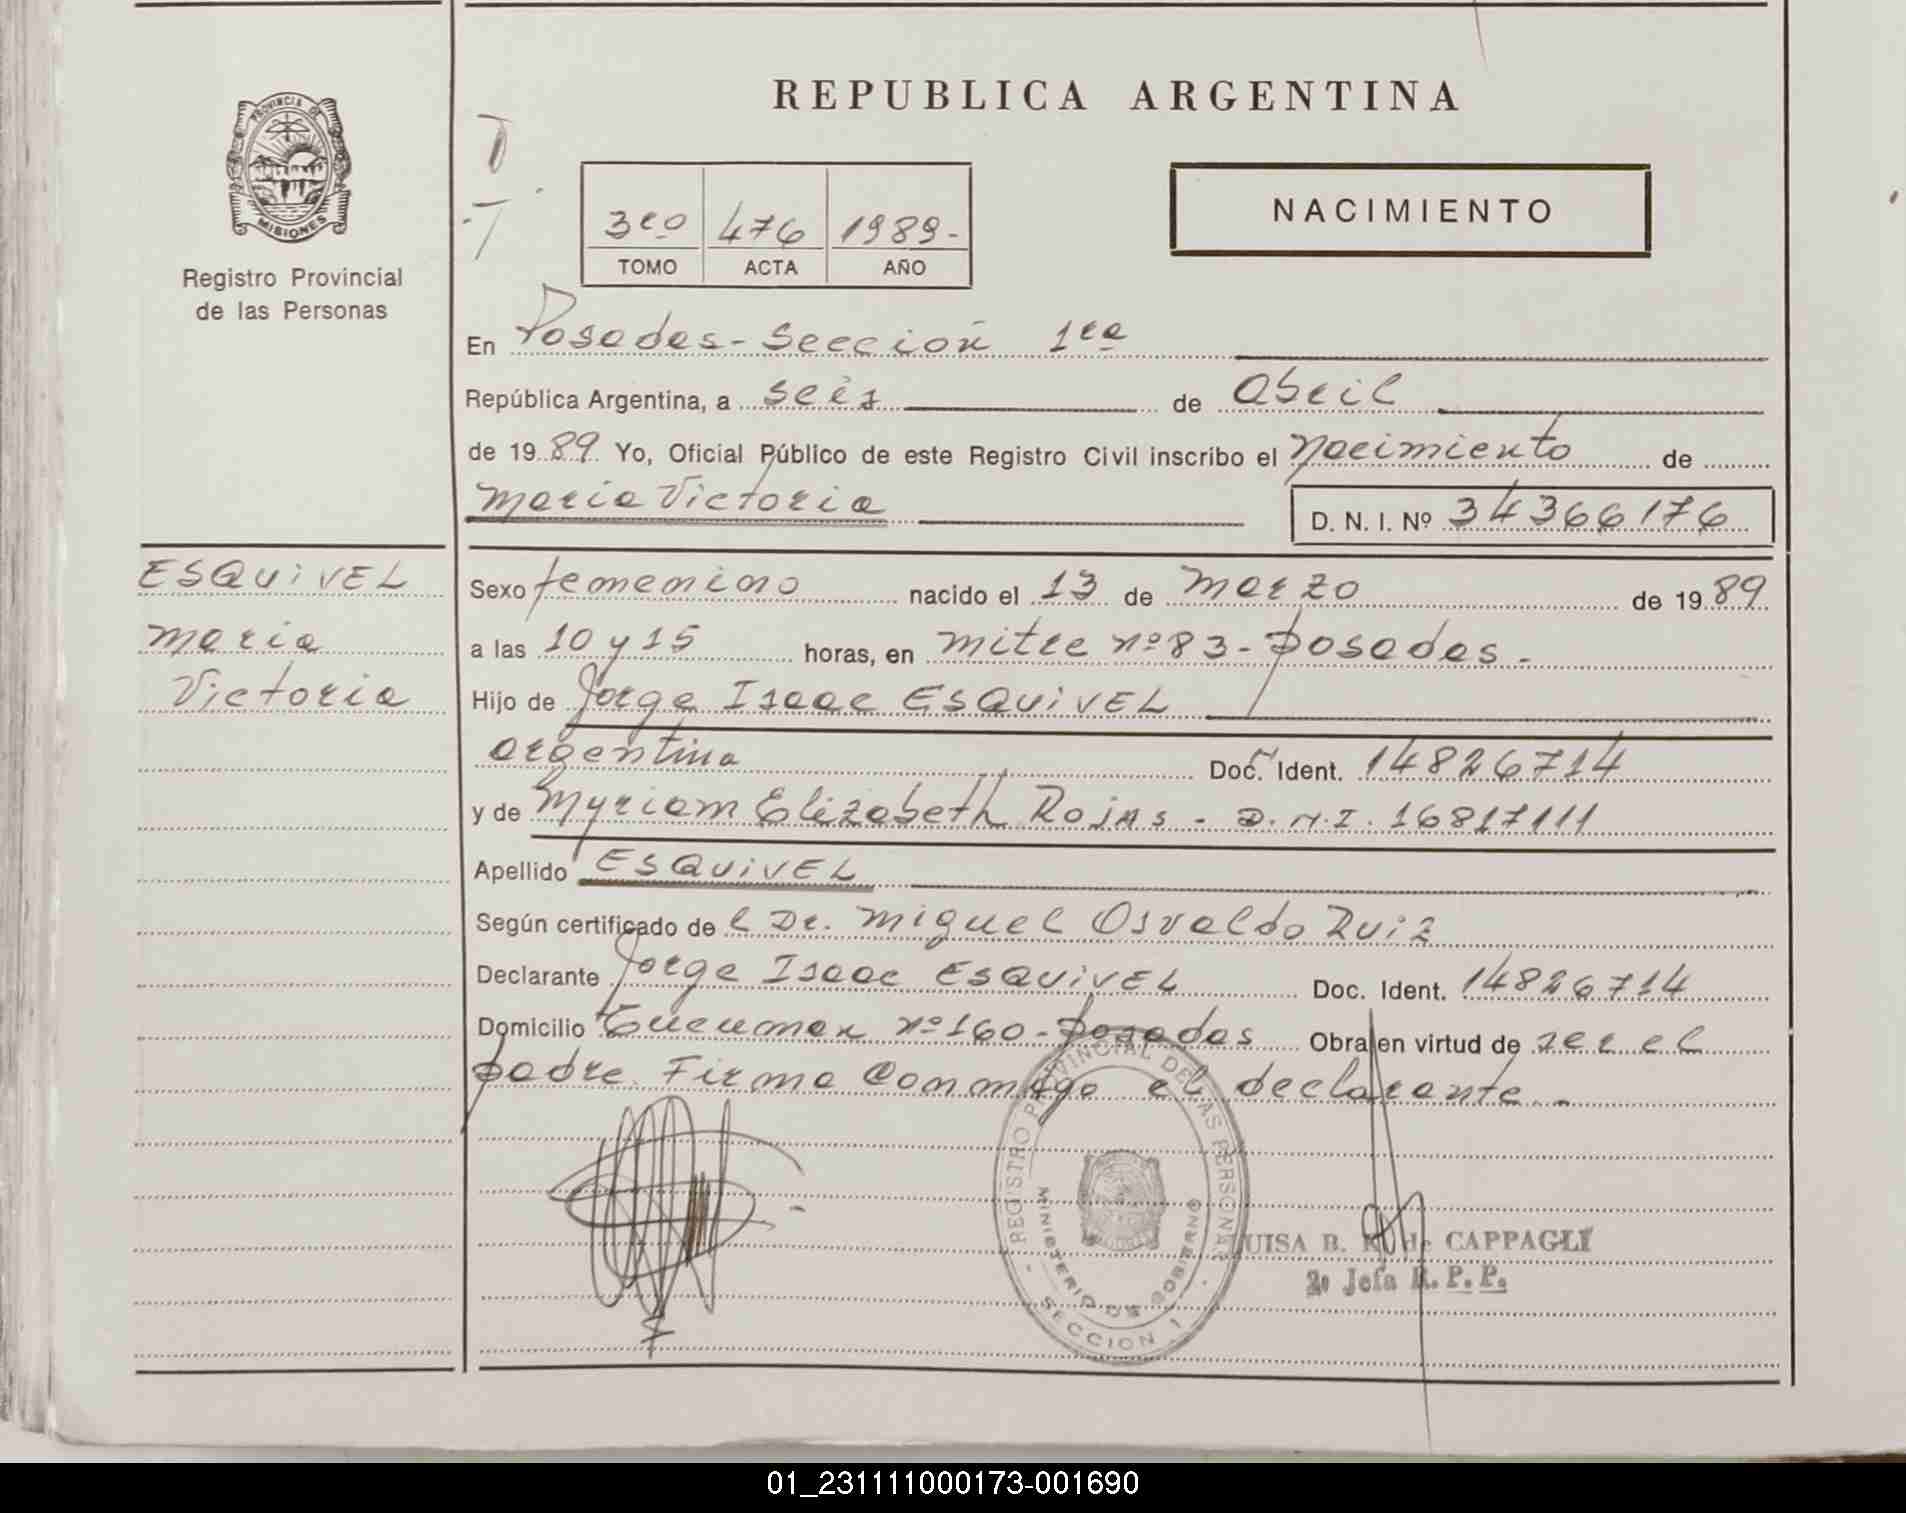 REPUBLICA ARGENTINA
PROVINCIA DE
MISIONES
Registro Provincial
de las Personas
3ro 476 1989-
TOMO ACTA AÑO
NACIMIENTO
En Posadas - Sección 1ra
República Argentina, a seis de abril
de 1989 Yo, Oficial Público de este Registro Civil inscribo el nacimiento de
Maria Victoria D. N. I. Nº 34366176
ESQUIVEL
Maria
Victoria
Sexo femenino nacido el 13 de Marzo de 1989
a las 10 y 15 horas, en Mitre nº 83 - Posadas -
Hijo de Jorge Isaac ESQUIVEL
argentina Doc. Ident. 14826714
y de Myriam Elizabeth Rojas - D.N.I. 16817111
Apellido ESQUIVEL
Según certificado del Dr. Miguel Osvaldo Ruiz
Declarante Jorge Isaac ESQUIVEL Doc. Ident. 14826714
Domicilio Tucuman nº 160 - Posadas Obra en virtud de ser el
padre. Firma conmigo el declarante. -
REGISTRO PROVINCIAL DE LAS PERSONAS
MINISTERIO DE GOBIERNO
SECCION 1
LUISA B. de CAPPAGLI
2º Jefa R. P. P.
01_231111000173-001690